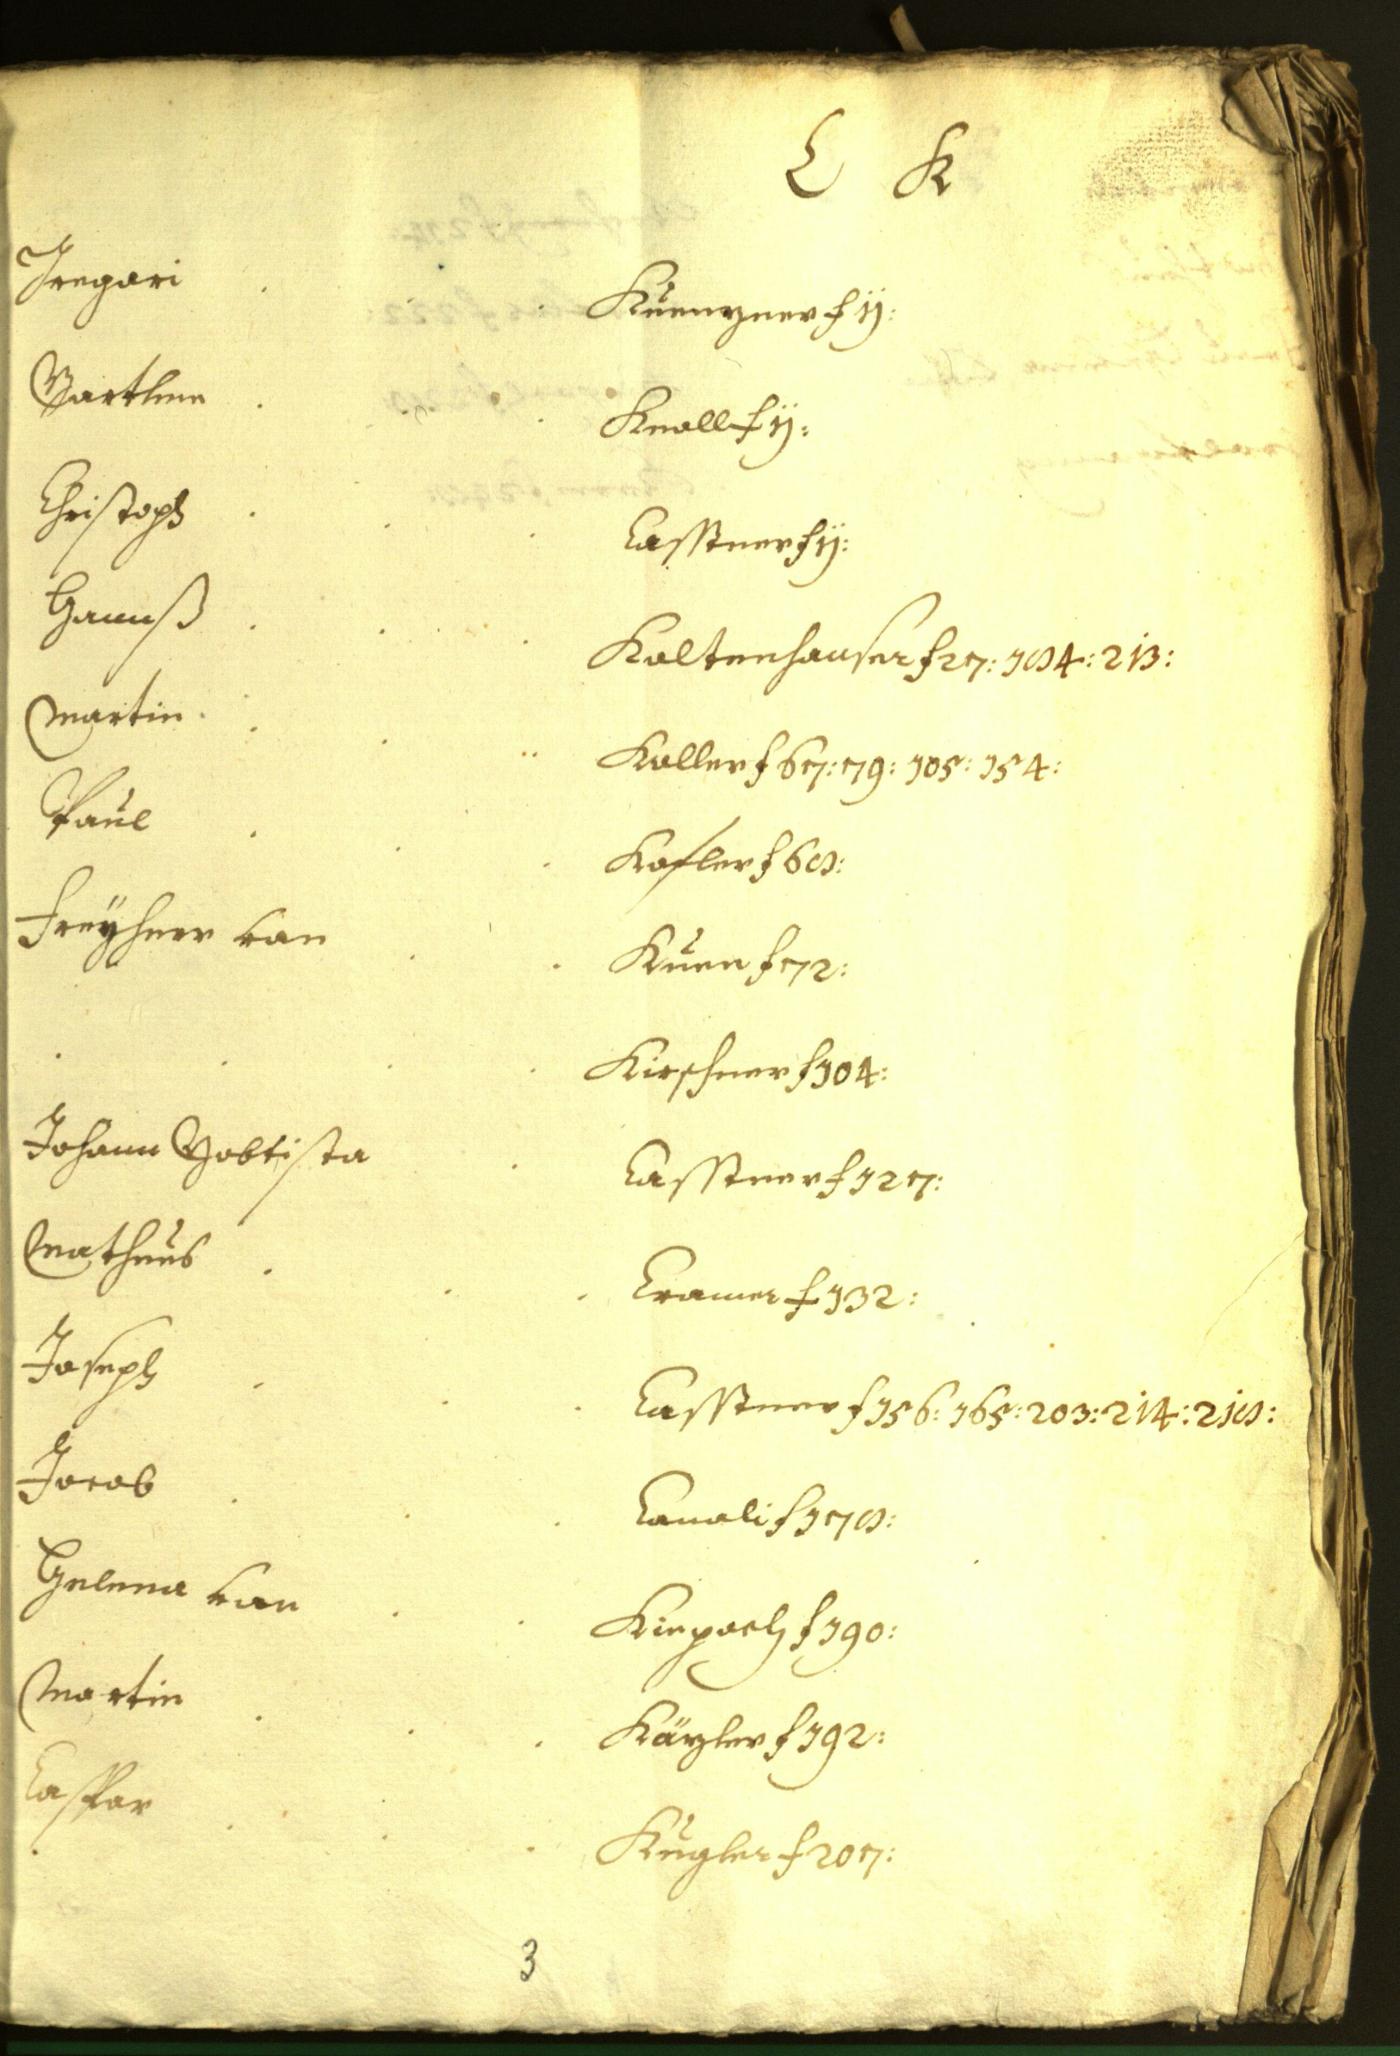 C K
Gregori . . . Kuenzner f 11:
Barthlme . . . Knoll f 11:
Christoph . . . Casstner f 11:
Hannß . . . Kaltenhauser f 27: 184: 213:
Martin . . . Koller f 67: 79: 105: 154:
Paul . . . Kofler f 68:
Freyherr von . . Kuen f 72:
. . . . Kirschner f 104:
Johann Babtista . Casstner f 127:
Matheus . . . Cramer f 132:
Joseph . . . Casstner f 156: 165: 203: 214: 218:
Jacob . . . Canali f 178:
Helena von . . Kiepach f 190:
Martin . . . Käzler f 192:
Caspar . . . Kugler f 207:
3